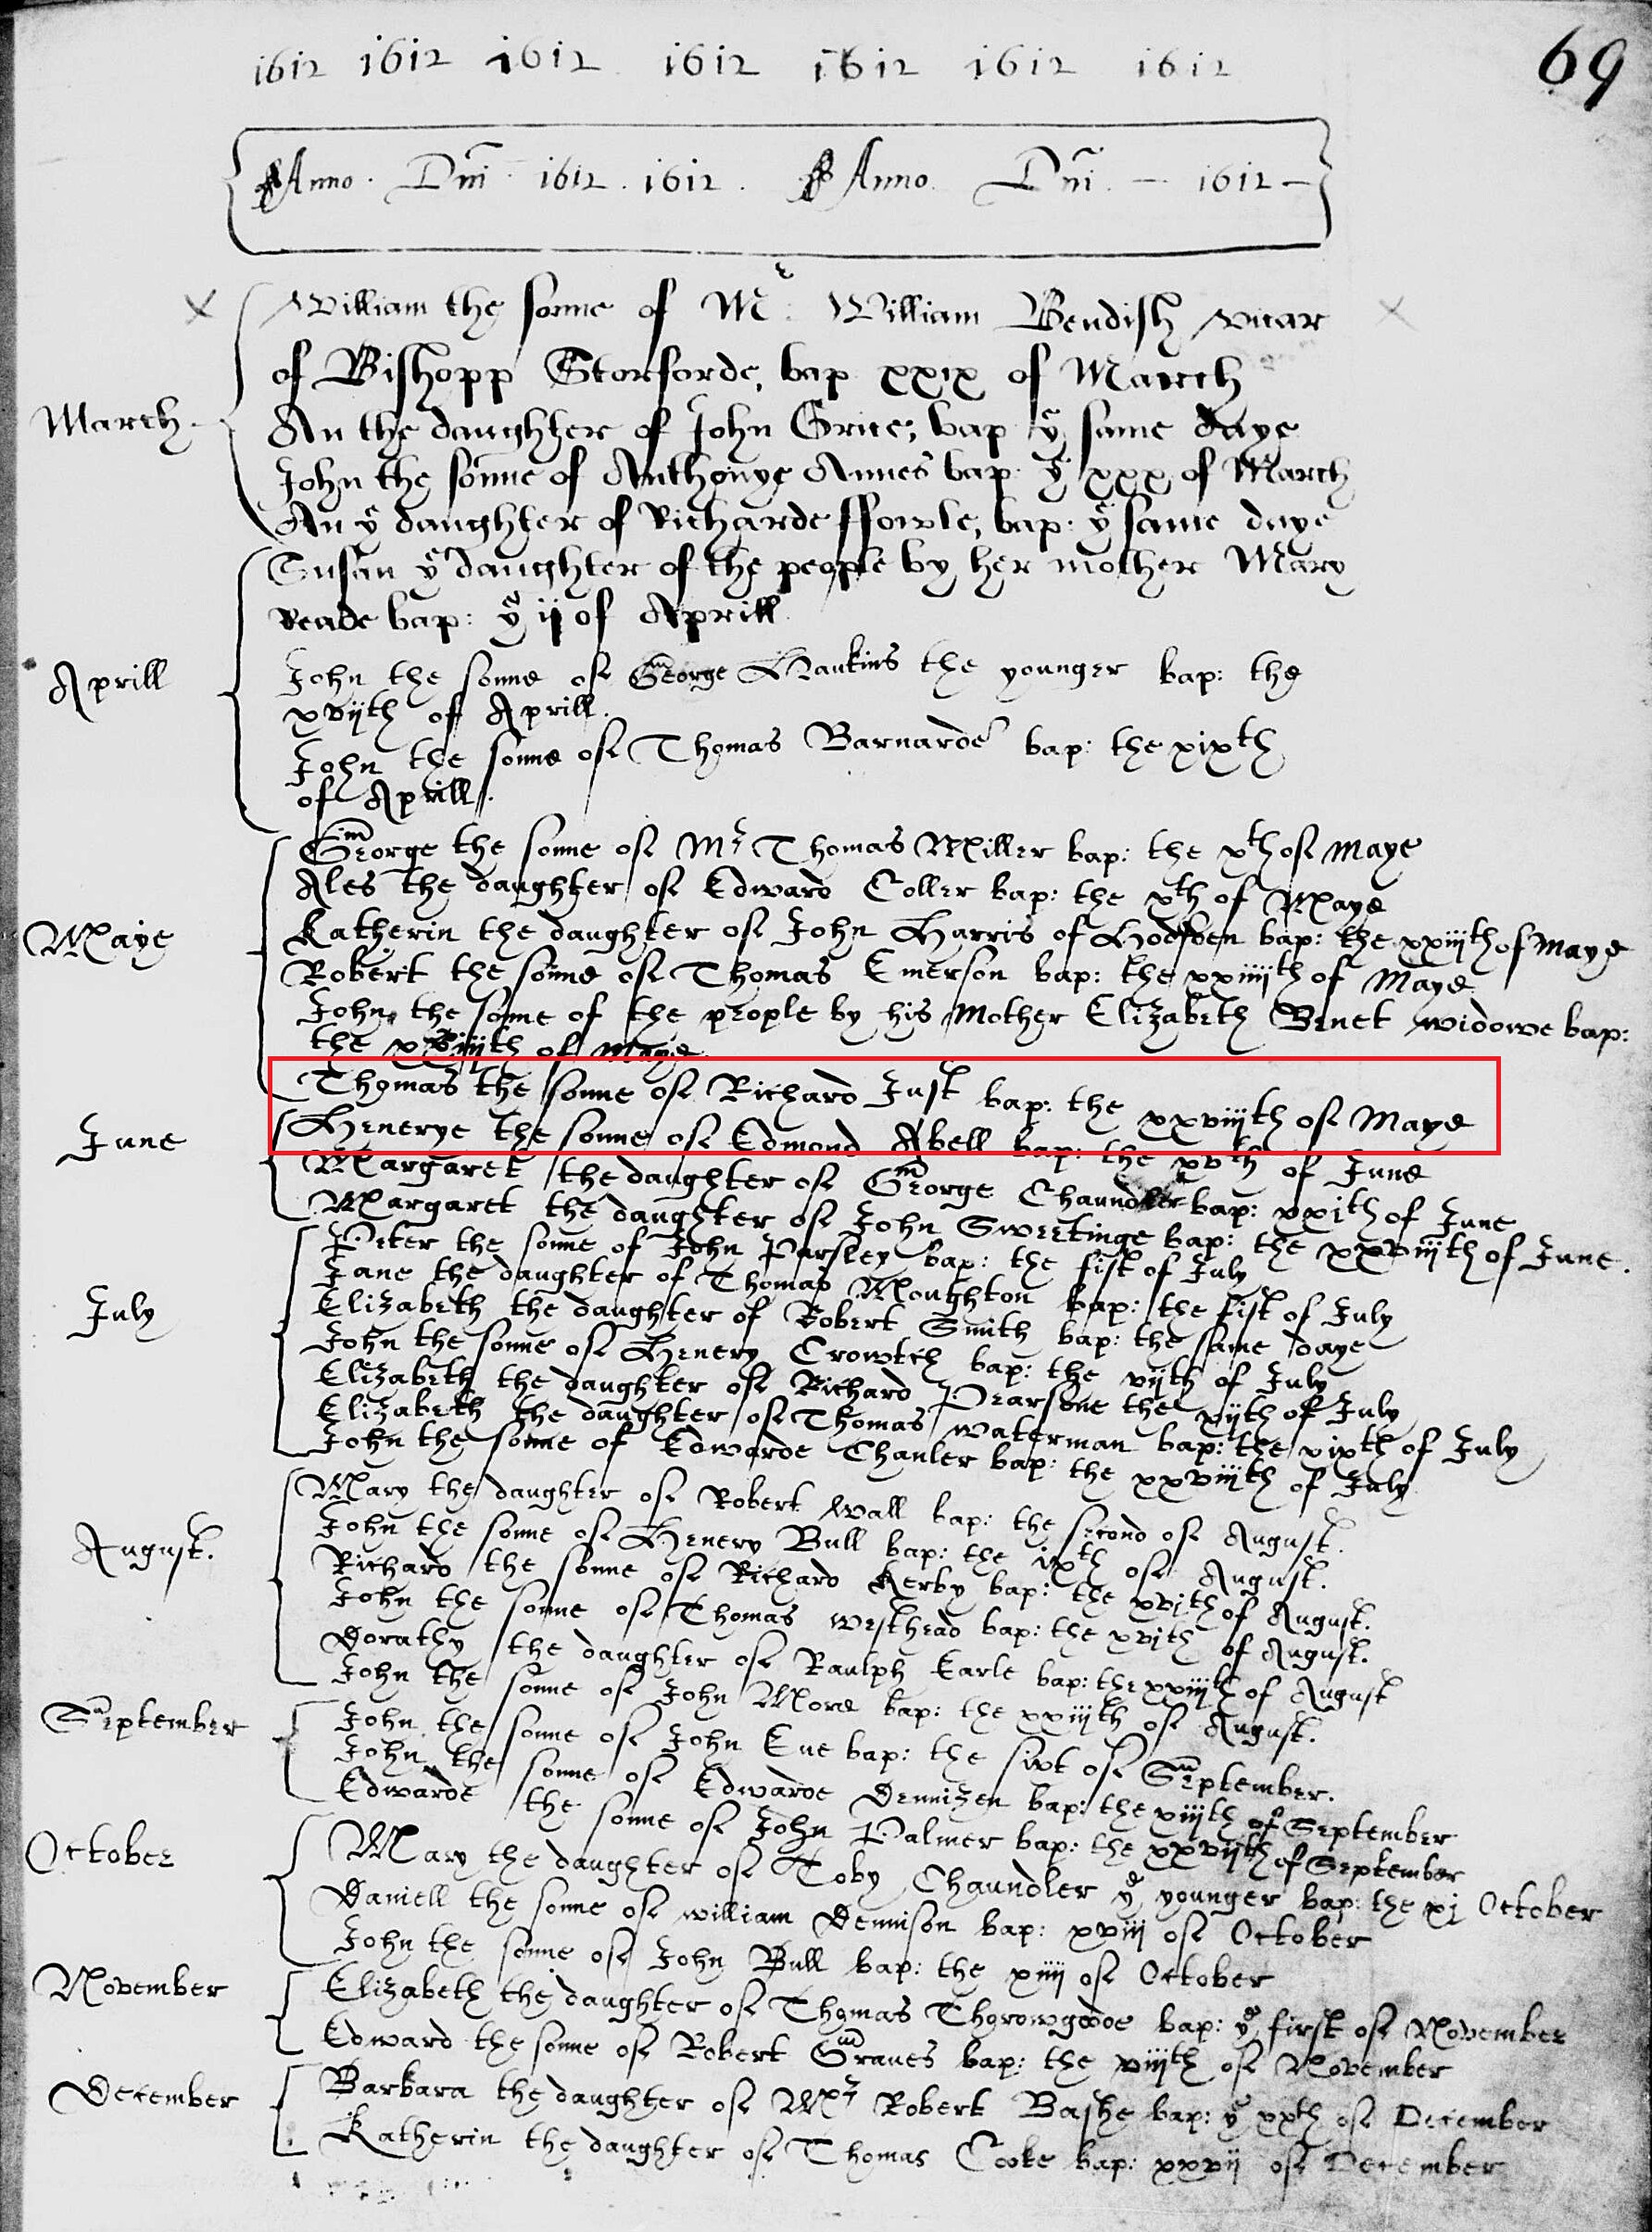 69
1612 1612 1612 1612 1612 1612 1612
Anno. Dni 1612. 1612. Anno. Dni. - 1612 -
William the sonne of Mr. William Bendish vicar
of Bishopp Storforde, bap xxix of March
March.
An the daughter of John Grice, bap ye same daye
John the sonne of Anthonye Annes bap: ye xxx of March
An ye daughter of Richarde ffowle, bap: ye same daye
Susan ye daughter of the people by her mother Mary
Reade bap: ye ij of Aprill
Aprill
John the sonne of George Hankins the younger bap: the
xvijth of Aprill.
John the sonne of Thomas Barnarde bap: the xixth
of Aprill.
George the sonne of Mr Thomas Miller bap: the xth of Maye
Ales the daughter of Edward Coller bap: the xth of Maye
Maye
Katherin the daughter of John Harris of Hodsden bap: the xxiijth of Maye
Robert the sonne of Thomas Emerson bap: the xxiiijth of Maye
John the sonne of the people by his Mother Elizabeth Benet widowe bap:
the of Maye
Thomas the sonne of Richard Just bap: the xxviijth of Maye
June
Henerye the sonne of Edmond Abell bap: the xvth of June
Margaret the daughter of George Chaundler bap: xxith of June
Margaret the daughter of John Sweetinge bap: the xxviijth of June.
Peter the sonne of John Parsley bap: the fist of July
Jane the daughter of Thomas Moughton bap: the fist of July
July
Elizabeth the daughter of Robert Smith bap: the same daye
John the sonne of Henery Crowtch bap: the vijth of July
Elizabeth the daughter of Richard Pearsone the xijth of July
Elizabeth the daughter of Thomas Waterman bap: the xixth of July
John the sonne of Edwarde Chanler bap: the xxviijth of July
Mary the daughter of Robert Wall bap: the second of August
John the sonne of Henery Bull bap: the ixth of August.
August.
Richard the sonne of Richard Kerby bap: the xvith of August.
John the sonne of Thomas Westhead bap: the xvith of August.
Dorathy the daughter of Raulph Earle bap: the xxiijth of August
John the sonne of John More bap: the xxiijth of August.
September
John the sonne of John Eue bap: the sixt of September.
John the sonne of Edwarde Dennizen bap: the xiijth of September
Edwarde the sonne of John Palmer bap: the xxvijth of September
October
Mary the daughter of Toby Chaundler ye younger bap: the xj October
Daniell the sonne of William Dennison bap: xviij of October
John the sonne of John Bull bap: the xiiij of October
November
Elizabeth the daughter of Thomas Thorowgode bap: ye first of November
Edward the sonne of Robert Graues bap: the viijth of November
December
Barbara the daughter of Mr Robert Bashe bap: ye xxth of December
Katherin the daughter of Thomas Cooke bap: xxvij of December